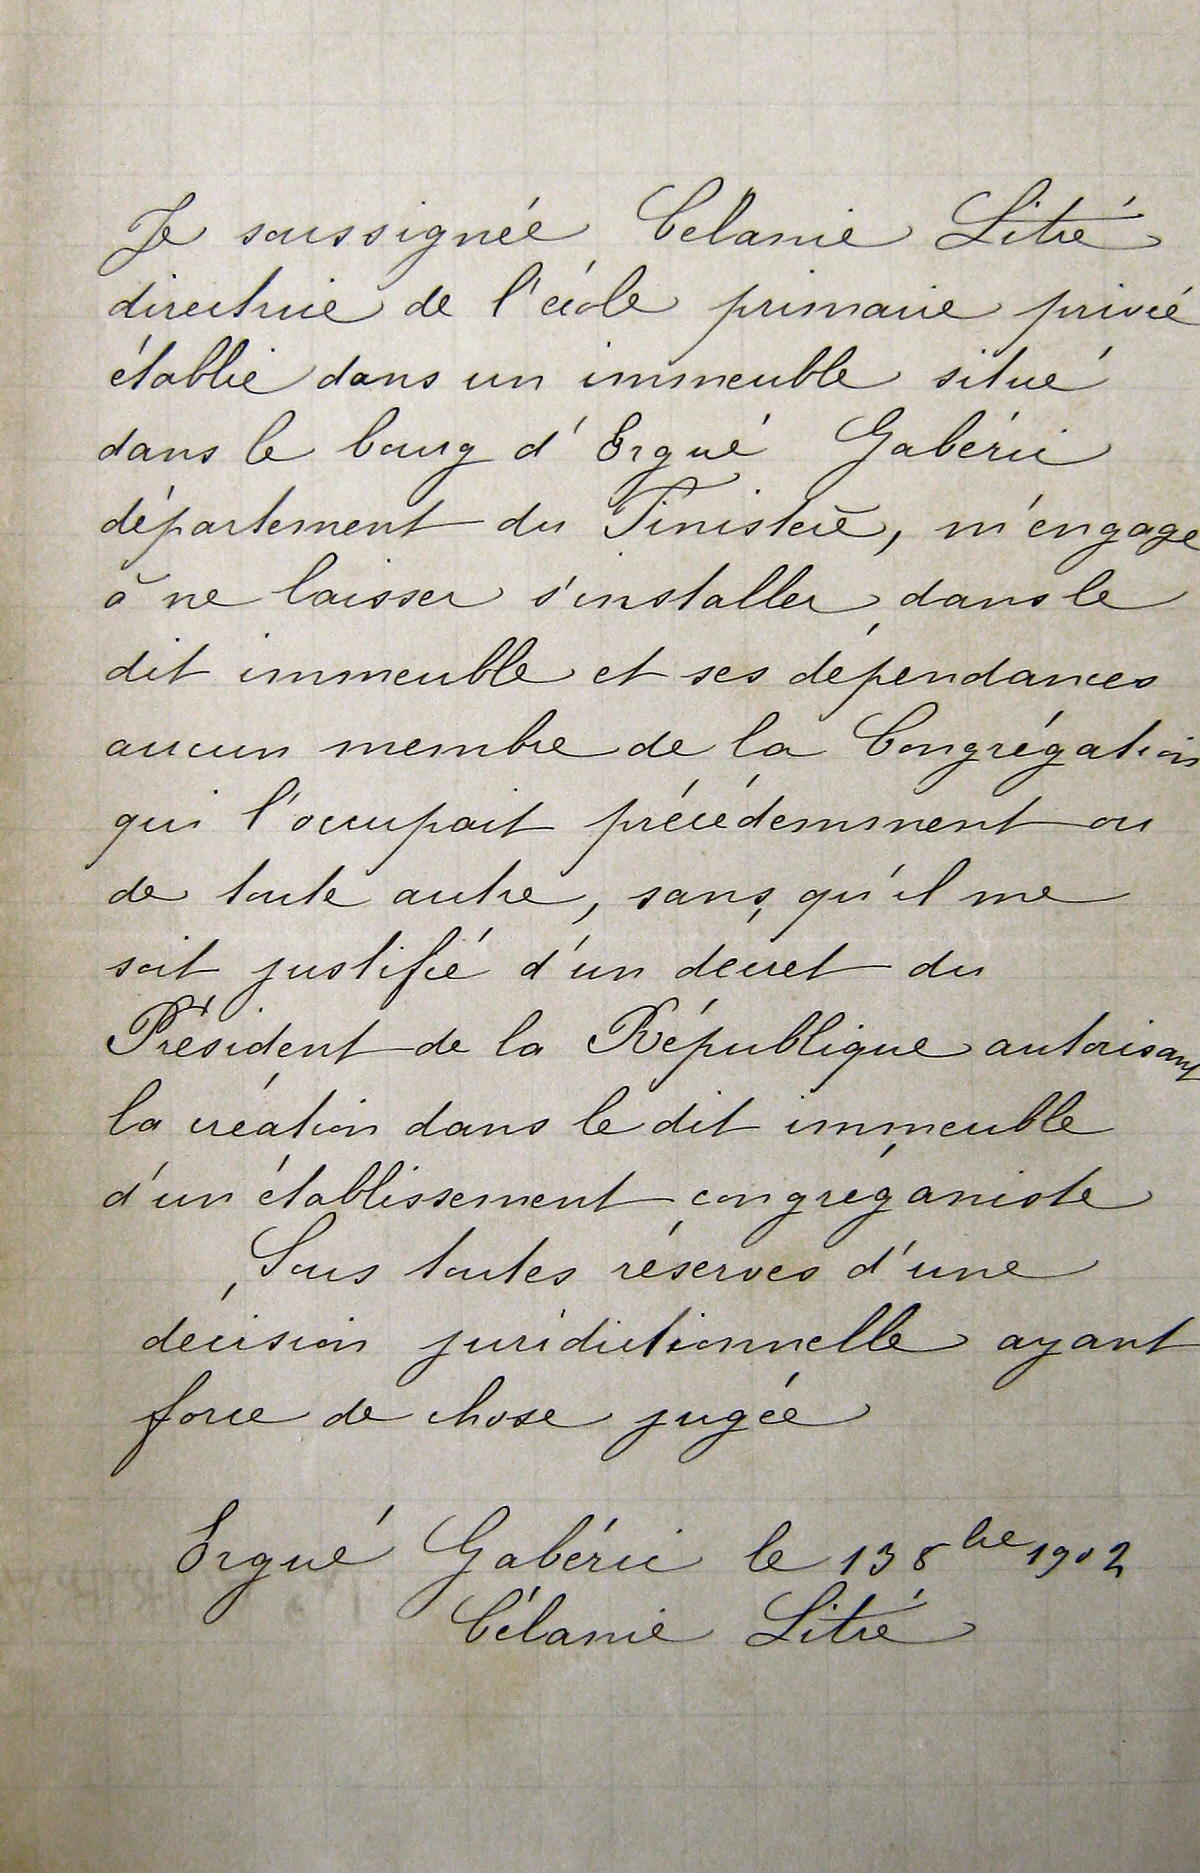 Je soussignée Célanie Litré
directrice de l'école primaire privée
établie dans un immeuble situé
dans le bourg d'Ergué Gabéric
département du Finistère, m'engage
à ne laisser s'installer dans le
dit immeuble et ses dépendances
aucun membre de la Congrégation
qui l'occupait précédemment ou
de toute autre, sans qu'il me
soit justifié d'un décret du
Président de la République autorisant
la création dans le dit immeuble
d'un établissement congréganiste
Sous toutes réserves d'une
décision juridictionnelle ayant
force de chose jugée
Ergué Gabéric le 13 8bre 1902
Célanie Litré